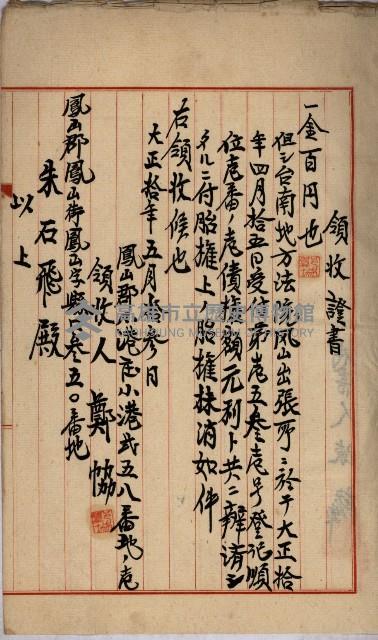 領收證書
一金百円也
但シ台南地方法院鳳山出張所ニ於テ大正拾
年四月拾五日受付第壱五叁壱号登記順
位壱番ノ壱債権額元利ト共ニ辨済シ
タルニ付胎権上ノ胎権抹消如件
右領收候也
大正拾年五月叁日
鳳山郡小港庄小港弍五八番地ノ壱
領收人 鄭協
鳳山郡鳳山街鳳山字縣叁五〇番地
朱石飛殿
以上
高雄市立歷史博物館